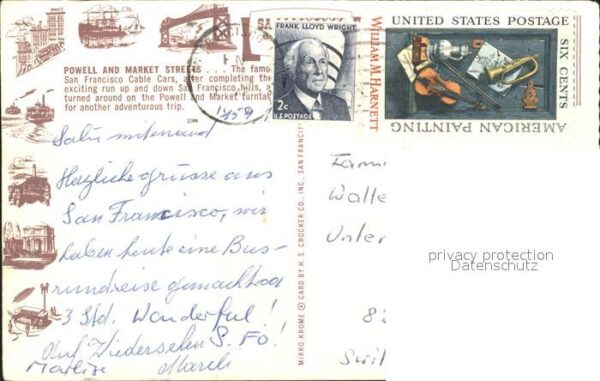 SA
POWELL AND MARKET STREETS . . . The famo
San Francisco Cable Cars, after completing the
exciting run up and down San Francisco hills, a
turned around on the Powell and Market turnta
for another adventurous trip.
FRANK LLOYD WRIGHT
2c
U.S. POSTAGE
WILLIAM M. HARNETT
UNITED STATES POSTAGE
SIX CENTS
AMERICAN PAINTING
Salü mitenand
Herzliche grüsse aus
San Francisco, wir
haben heute eine Bus-
rundreise gemacht
3 Std. Wonderful!
Auf Wiedersehen S. Fo!
Marlise March
MIRRO-KROME © CARD BY H. S. CROCKER CO., INC., SAN FRANCIS
Fami
Walle
Unter
8
Swit
privacy protection
Datenschutz